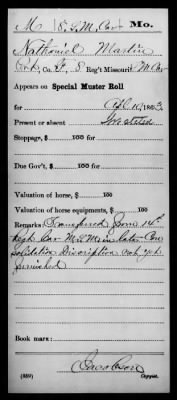 M 8 S.M. Cav Mo.
Nathaniel Martin
Co. F, 8 Reg't Missouri S M Cav
Appears on Special Muster Roll
for Apl 10, 1863
Present or absent Not stated
Stoppage, $ 100 for
Due Gov't, $ 100 for
Valuation of horse, $ 100
Valuation of horse equipments, $ 100
Remarks: Transferred from 14th
Regt Cav M.S.M. in late Con
solidation Discription not yet
furnished
Book mark:
Jacobson
(859) Copyist.